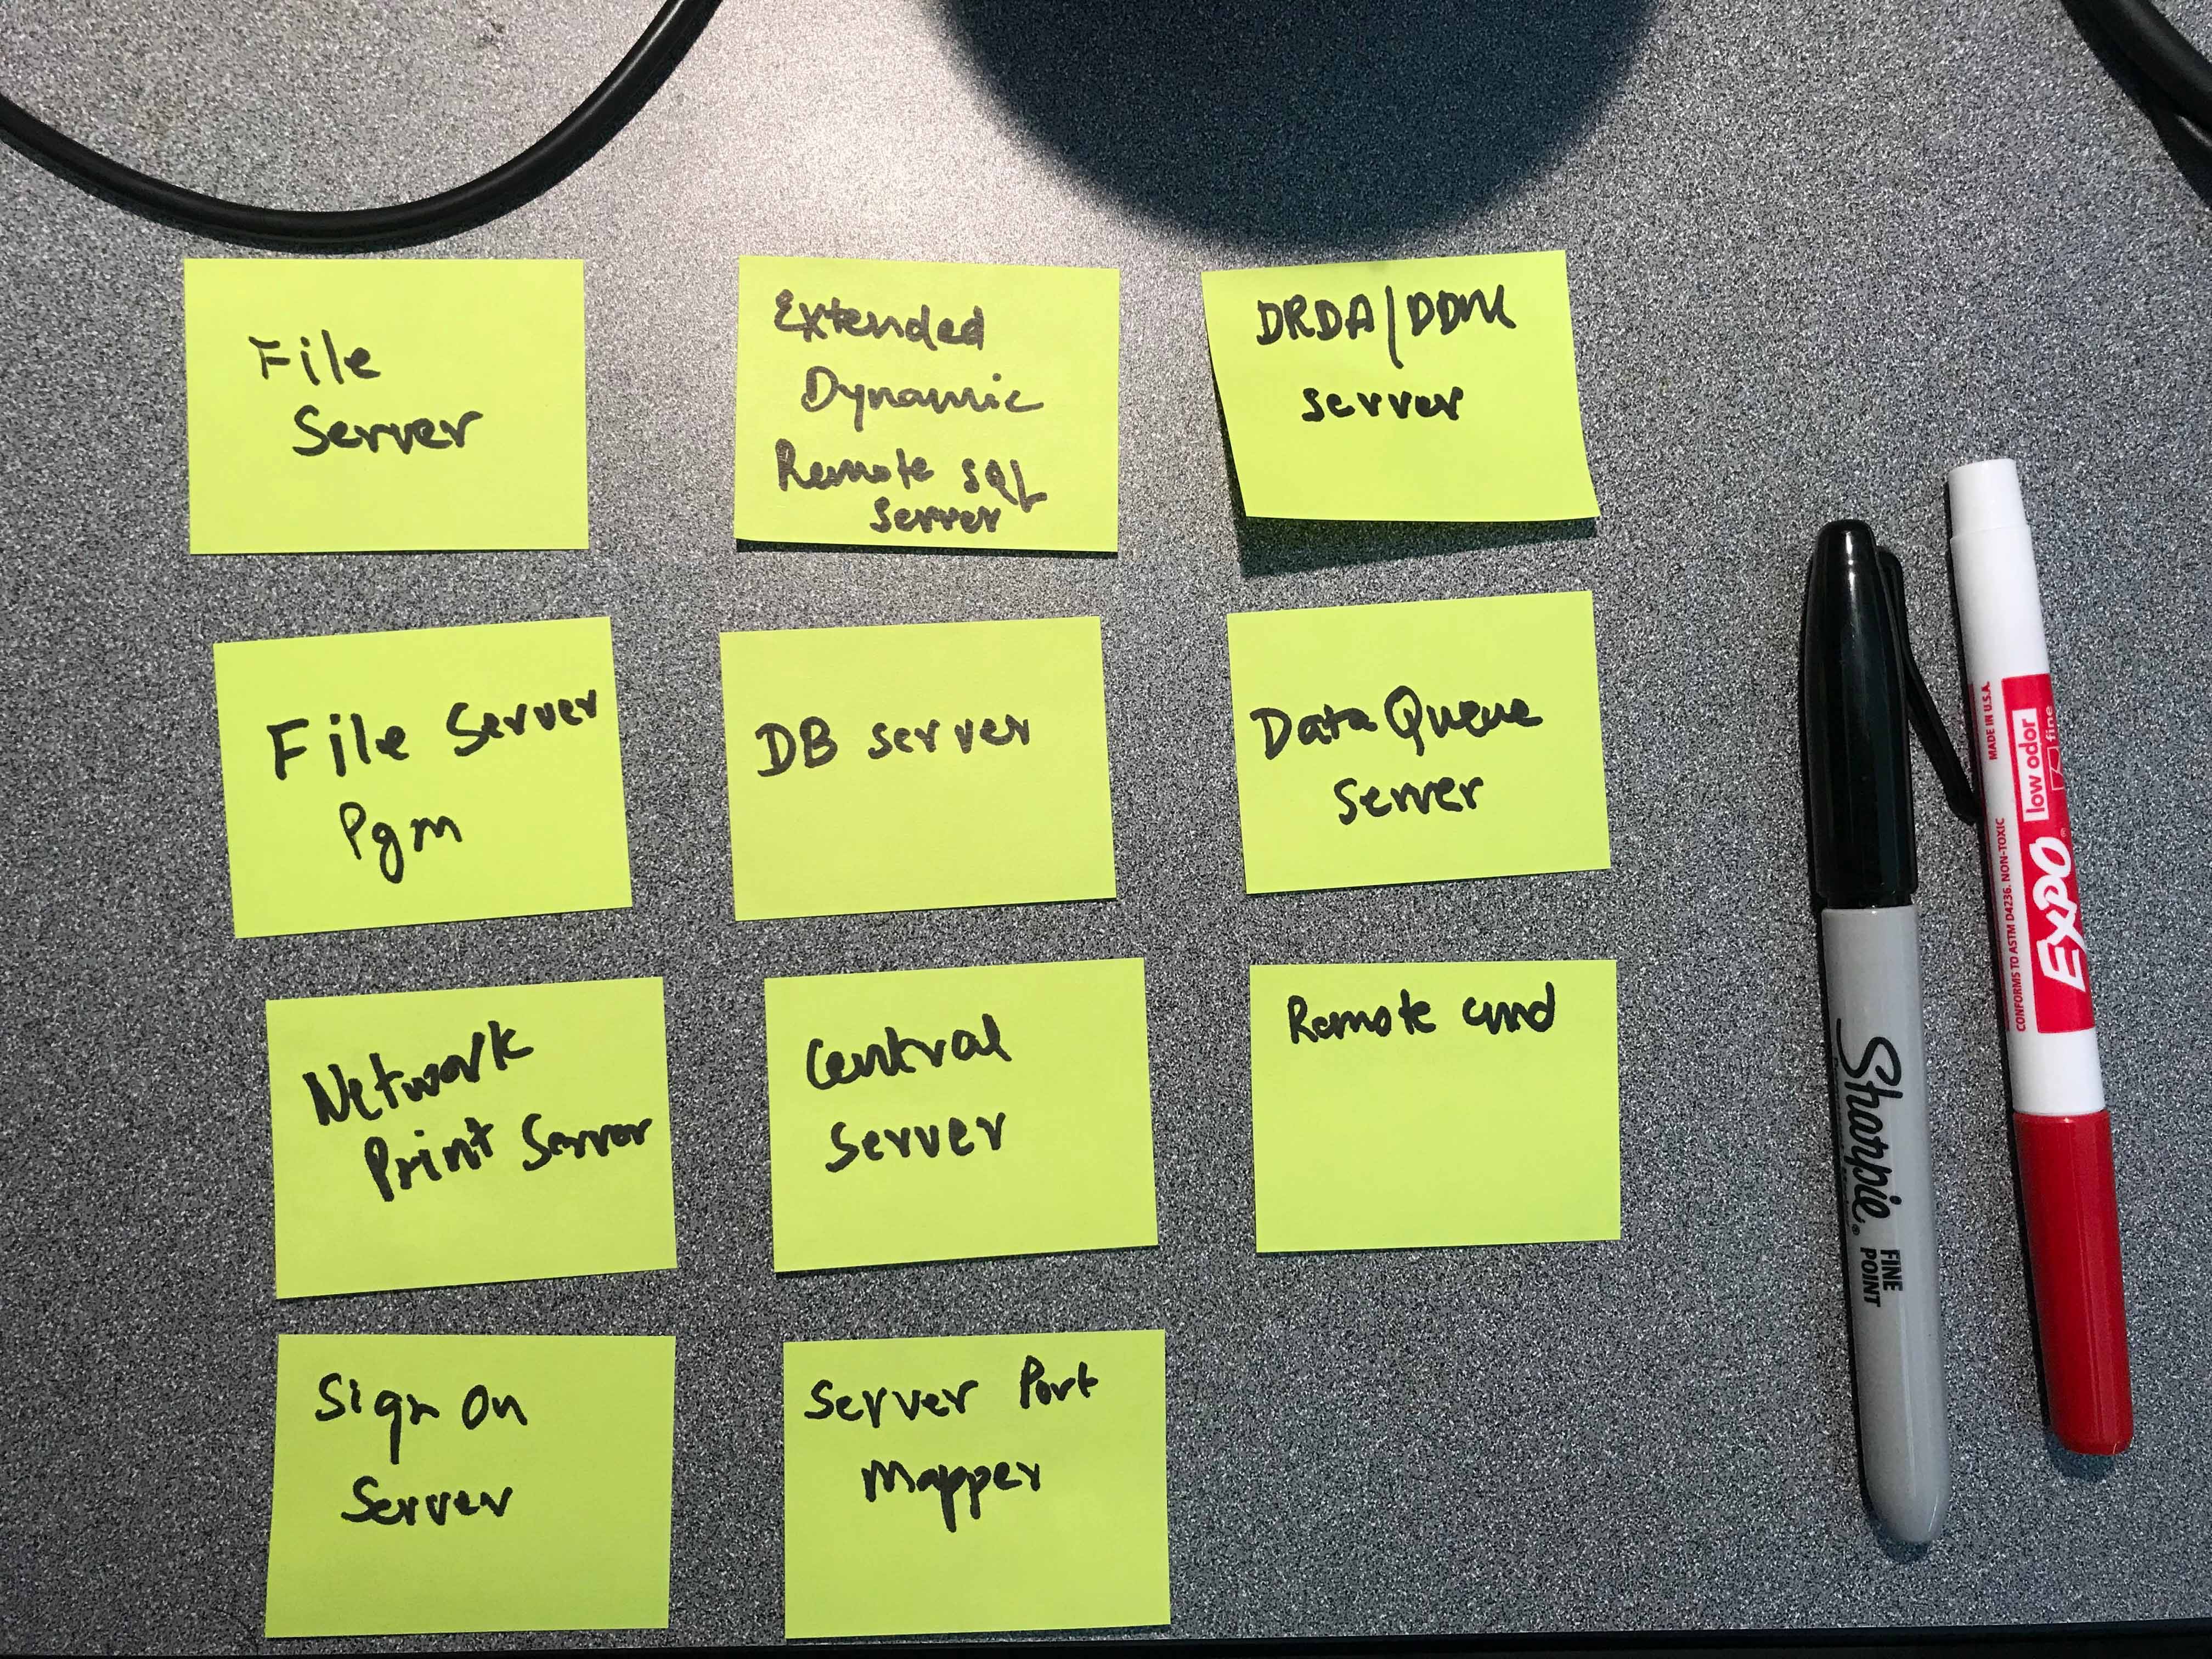 File
Server
Extended
Dynamic
Remote SQL
Server
DRDA/DDM
server
File Server
Pgm
DB server
Data Queue
Server
Network
Print Server
Central
Server
Remote cmd
Sign On
Server
Server Port
Mapper
Sharpie®
FINE
POINT
MADE IN U.S.A.
CONFORMS TO ASTM D4236. NON-TOXIC
EXPO®
low odor
fine